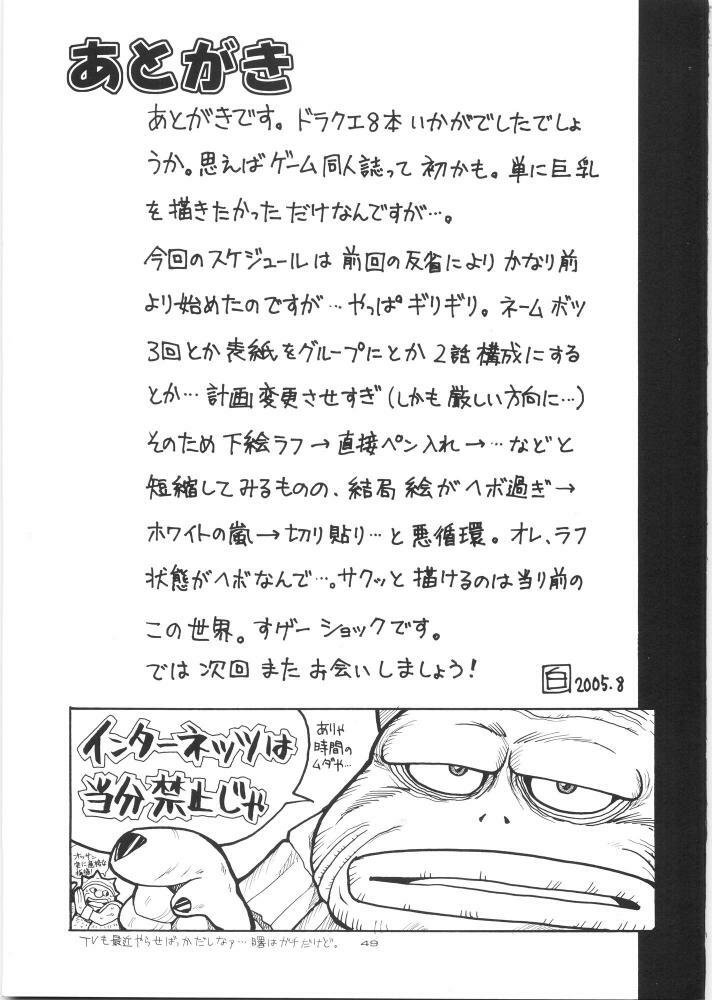 あとがき
あとがきです。ドラクエ8本いかがでしたでしょ
うか。思えばゲーム同人誌って初かも。単に巨乳
を描きたかっただけなんですが…。
今回のスケジュールは前回の反省によりかなり前
より始めたのですが…やっぱギリギリ。ネームボツ
3回とか表紙をグループにとか2話構成にする
とか…計画変更させすぎ(しかも厳しい方向に…)
そのため下絵ラフ→直接ペン入れ→…などと
短縮してみるものの、結局絵がヘボ過ぎ→
ホワイトの嵐→切り貼り…と悪循環。オレ、ラフ
状態がヘボなんで…。サクッと描けるのは当り前の
この世界。すげーショックです。
では次回またお会いしましょう!
2005.8
インターネッツは
当分禁止じゃ
ありゃ
時間の
ムダや…
オッサン
TVも最近やらせばっかだしなァ…曙はガチだけど。
49